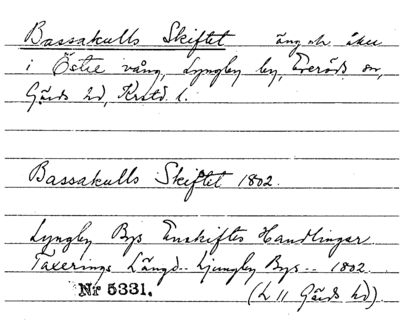 Bassakulls Skiftet äng o. åker
i Östre vång, Lyngby by, Everöds sn,
Gärds hd, Krstd. l.
Bassakulls Skiftet 1802.
Lyngby Bys Enskiftes Handlingar
Taxerings Längd.. Ljungby Bys.. 1802.
Nr 5331.
(L 11 Gärds hd)